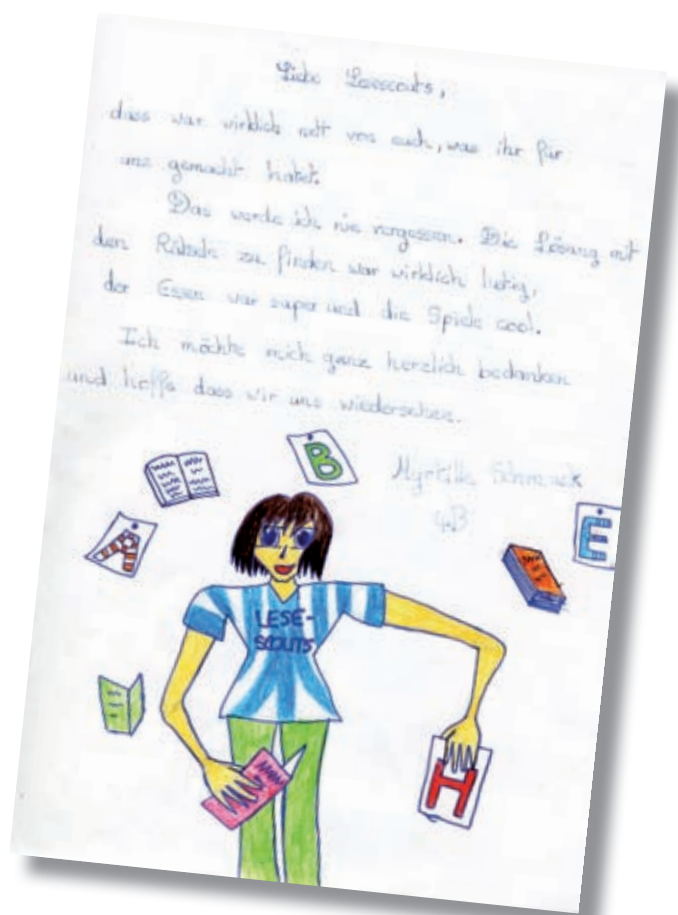 Liebe Lesescouts,
dass war wirklich nett von euch, was ihr für
uns gemacht habt.
Das werde ich nie vergessen. Die Lösung mit
den Rätseln zu finden war wirklich lustig,
der Essen war super und die Spiele cool.
Ich möchte mich ganz herzlich bedanken
und hoffe dass wir uns wiedersehen.
Myrtille
4B
B
A
E
LESE-
SCOUTS
H